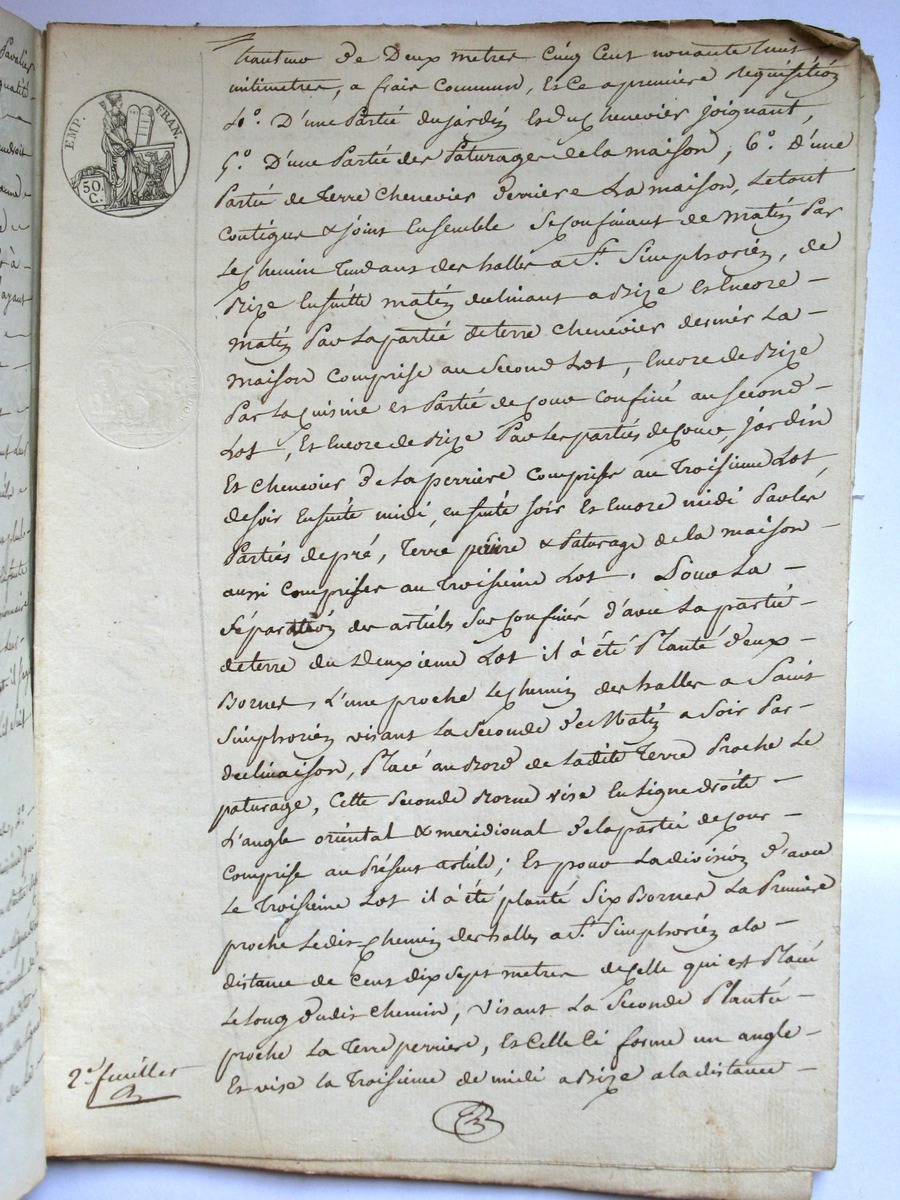 EMP. FRAN.
50. C.
hauteur de Deux metres Cinq Cent nonante huit
milimetres, a frais Commun, Et Ce a premiere requisition
4.° D'une Partie du jardin Et du Chenevier joignant,
5.° D'une Partie des Paturages de la maison, 6.° d'une
Partie de Terre Chenevier derriere La maison, Le tout
Contigue & joint Ensemble Se Confinant de Matin Par
Le Chemin Tendant des halles a S.t Simphorien, de
Bize Ensuitte matin declinant a Bize Et Encore
matin Par La partie de terre Chenevier derrier La
maison Comprise au Second Lot, Encore de Bize
Par La Cuisine et Partie de Cour Confiné au Second
Lot, Et Encore de Bize Par Les parties de Cour, jardin
Et Chenevier de La perriere Comprises au Troisieme Lot,
de soir Ensuite midi, ensuite soir Et Encore midi Par les
Parties de pré, Terre & Paturage de la maison
aussi Comprises au Troisieme Lot. Pour La
Séparation des articles Sus Confinés d'avec La partie
de terre du Deuxieme Lot il à été Planté deux
Bornes, L'une proche Le Chemin des halles a Saint
Simphorien visant La Seconde de Matin a Soir Par
declinaison, Placé au Bord de Ladite Terre Proche Le
paturage, Cette Seconde Borne vise En Ligne droite
L'angle oriental & meridional de la partie de Cour
Comprise au Présent article; Et pour La division d'avec
Le Troisieme Lot il à été planté Six Bornes La Premiere
proche Ledit Chemin des halles a S.t Simphorien a la
distance de Cent dix Sept metres de Celle qui est Placé
Le Long dudit Chemin, Visant La Seconde Plantée
proche La Terre perriere, Et Celle Ci forme un angle
Et vise la Troisieme de midi a Bize a la distance
2.e feuillet